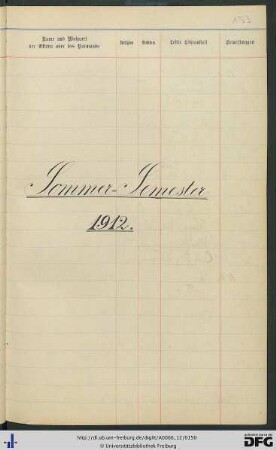 Name und Wohnort
der Eltern oder des Vormunds
Religion
Letzte Lehranstalt
Bemerkungen
Sommer-Semester
1912.
http://dl.ub.uni-freiburg.de/diglit/A0066_12/0150
© Universitätsbibliothek Freiburg
gefördert durch die
DFG